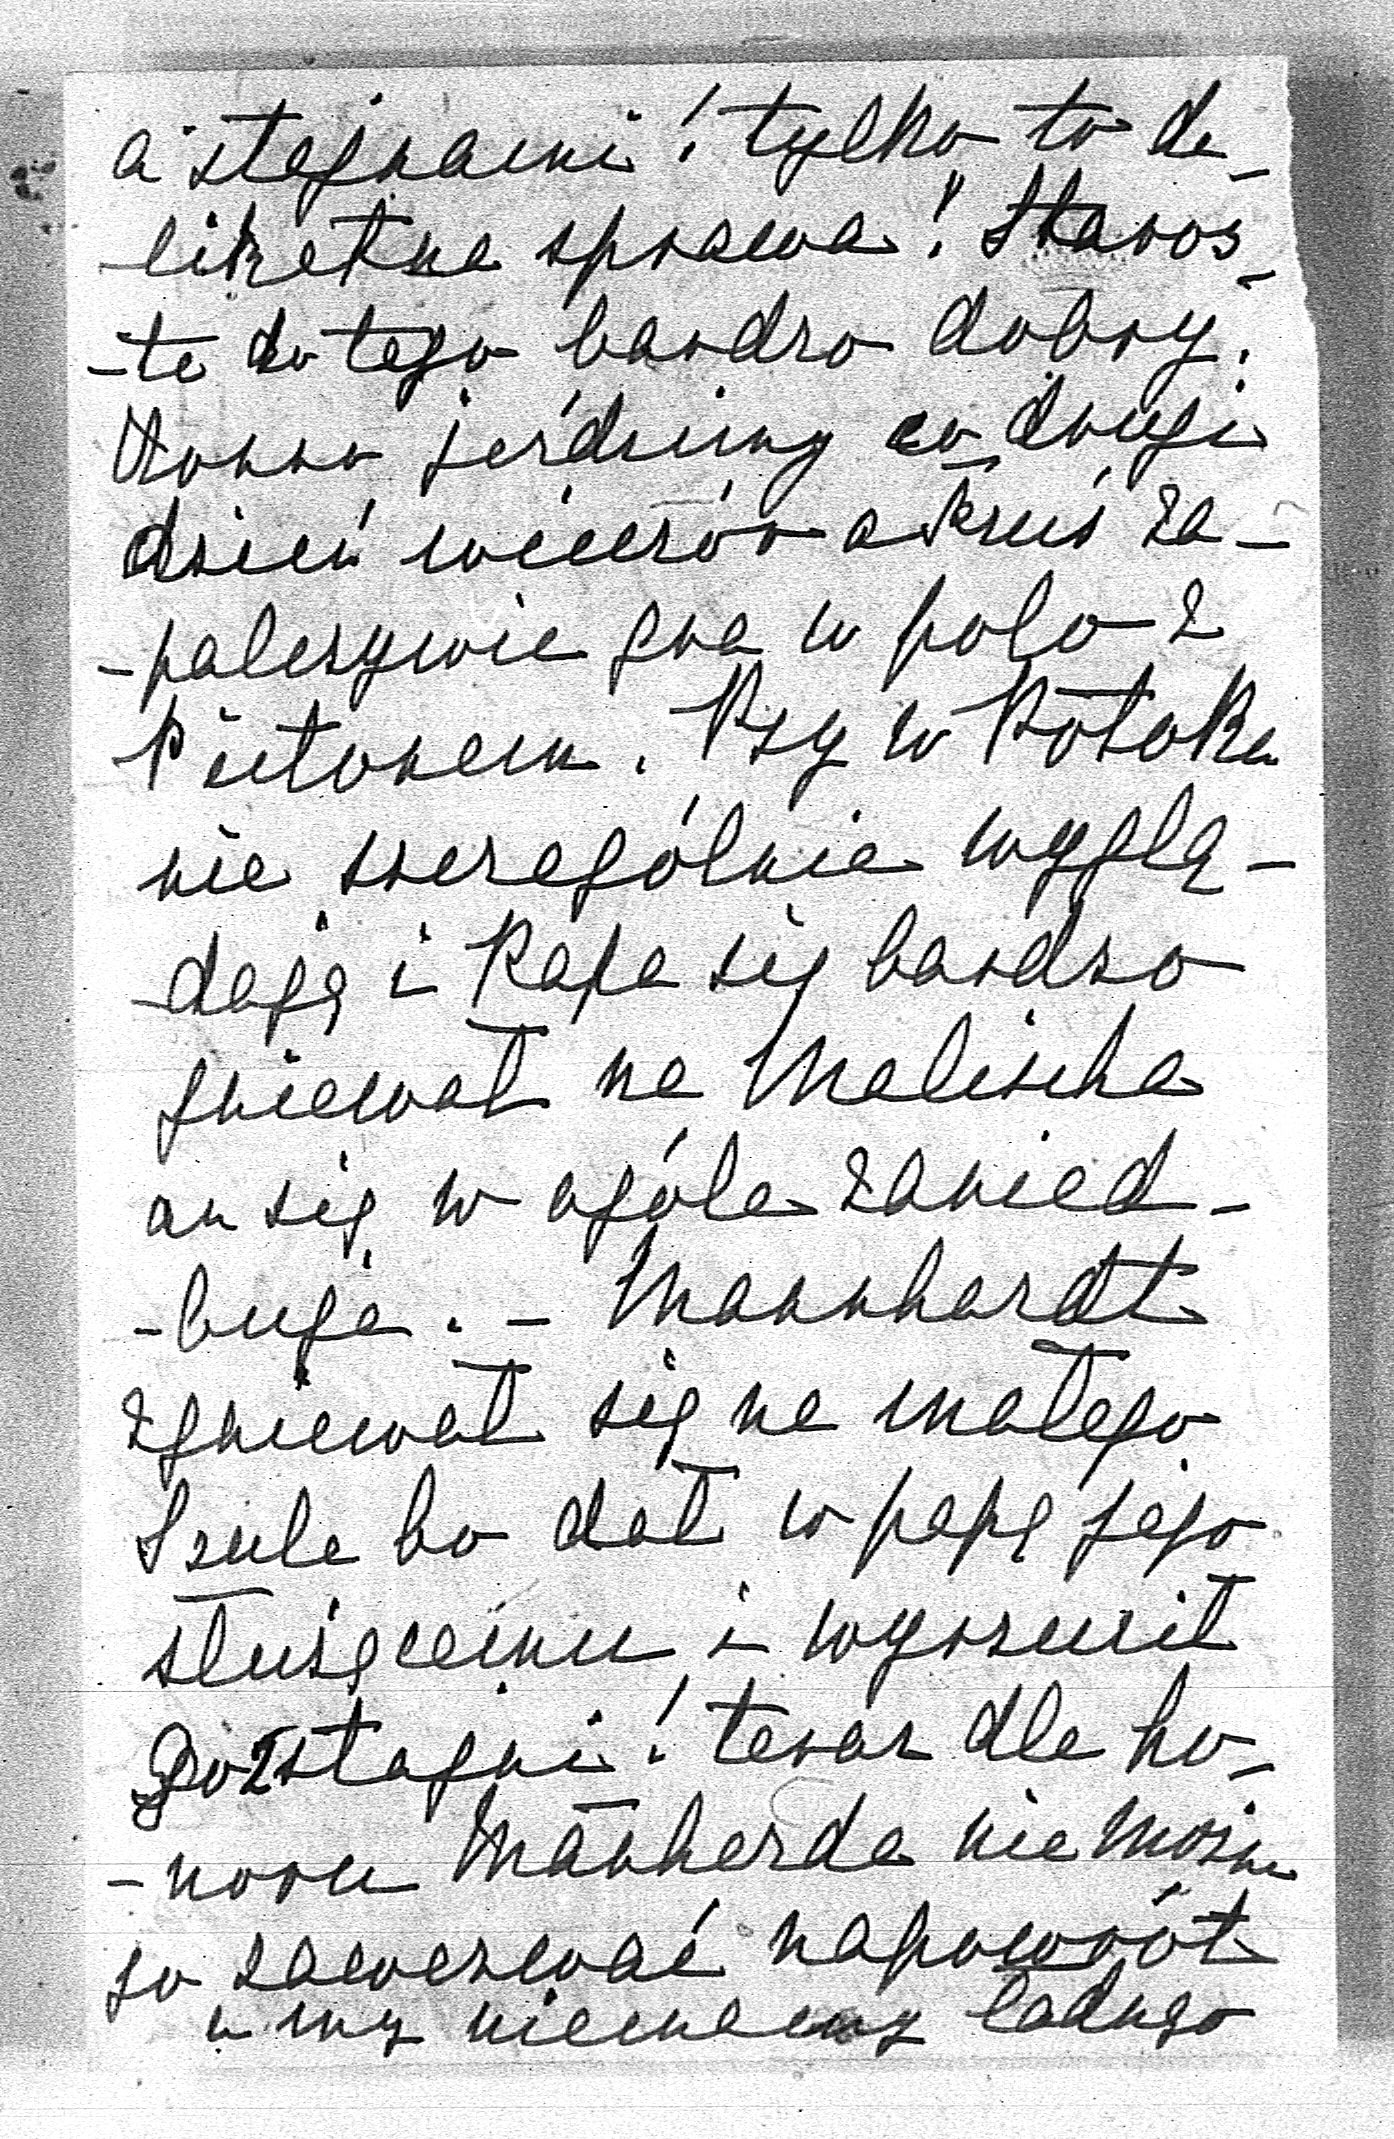 a stajnami! tylko to de-
-likatna sprawa! Staros-
-te do tego bardzo dobry.
Konno jeździmy co drugi
dzień wieczór a Kruś za-
-palczywie gra w polo z
Piutonem. Psy w Potoku
nie szczególnie wyglą-
-dają i Papa się bardzo
gniewał na Malischa
on się w ogóle zanied-
-buje. - Mannhardt
zgniewał się na małego
Szule bo dał w papę jego
służącemu i wyrzucił
go z stajni! teraz dla ho-
-noru Manharda nie można
go zawezwać napowrót
a my nie mamy ładnego